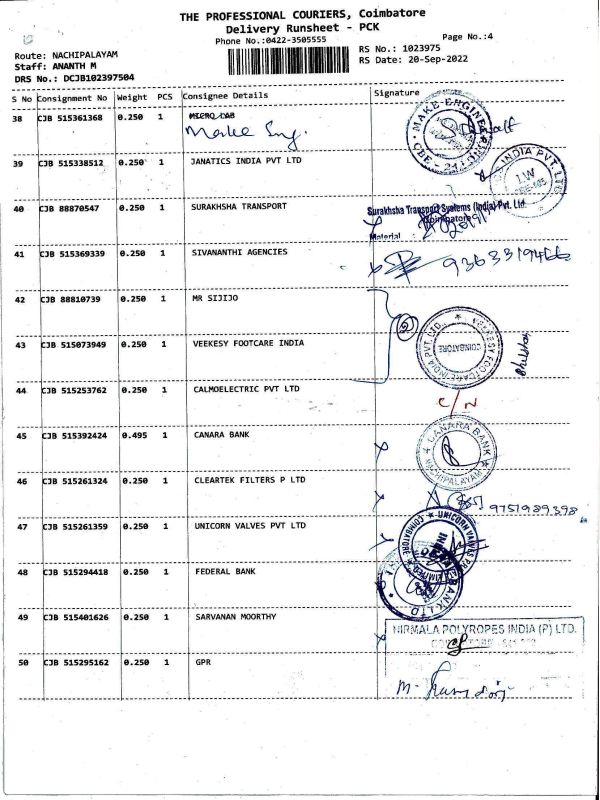 THE PROFESSIONAL COURIERS, Coimbatore
Delivery Runsheet - PCK
Phone No.:0422-3505555
Page No.:4
Route: NACHIPALAYAM
Staff: ANANTH M
DRS No.: DCJB102397504
RS No.: 1023975
RS Date: 20-Sep-2022
S No Consignment No Weight PCS Consignee Details Signature
38 CJB 515361368 0.250 1 MICRO LAB
Make Eng.
MAKE ENGINE
39 CJB 515338512 0.250 1 JANATICS INDIA PVT LTD
INDIA PVT. LTD.
1W
40 CJB 88870547 0.250 1 SURAKHSHA TRANSPORT
Surakhsha Transport Systems (India) Pvt. Ltd
Coimbatore
Material :
41 CJB 515369339 0.250 1 SIVANANTHI AGENCIES
9363319466
42 CJB 88810739 0.250 1 MR SIJIJO
2
43 CJB 515073949 0.250 1 VEEKESY FOOTCARE INDIA
VEEKESY FOOTCARE INDIA PVT. LTD.
COIMBATORE
44 CJB 515253762 0.250 1 CALMOELECTRIC PVT LTD
C/N
45 CJB 515392424 0.495 1 CANARA BANK
CANARA BANK
NACHIPALAYAM
46 CJB 515261324 0.250 1 CLEARTEK FILTERS P LTD
9751989398
47 CJB 515261359 0.250 1 UNICORN VALVES PVT LTD
UNICORN VALVES
COIMBATORE
48 CJB 515294418 0.250 1 FEDERAL BANK
BANK LTD
49 CJB 515401626 0.250 1 SARVANAN MOORTHY
NIRMALA POLYROPES INDIA (P) LTD.
50 CJB 515295162 0.250 1 GPR